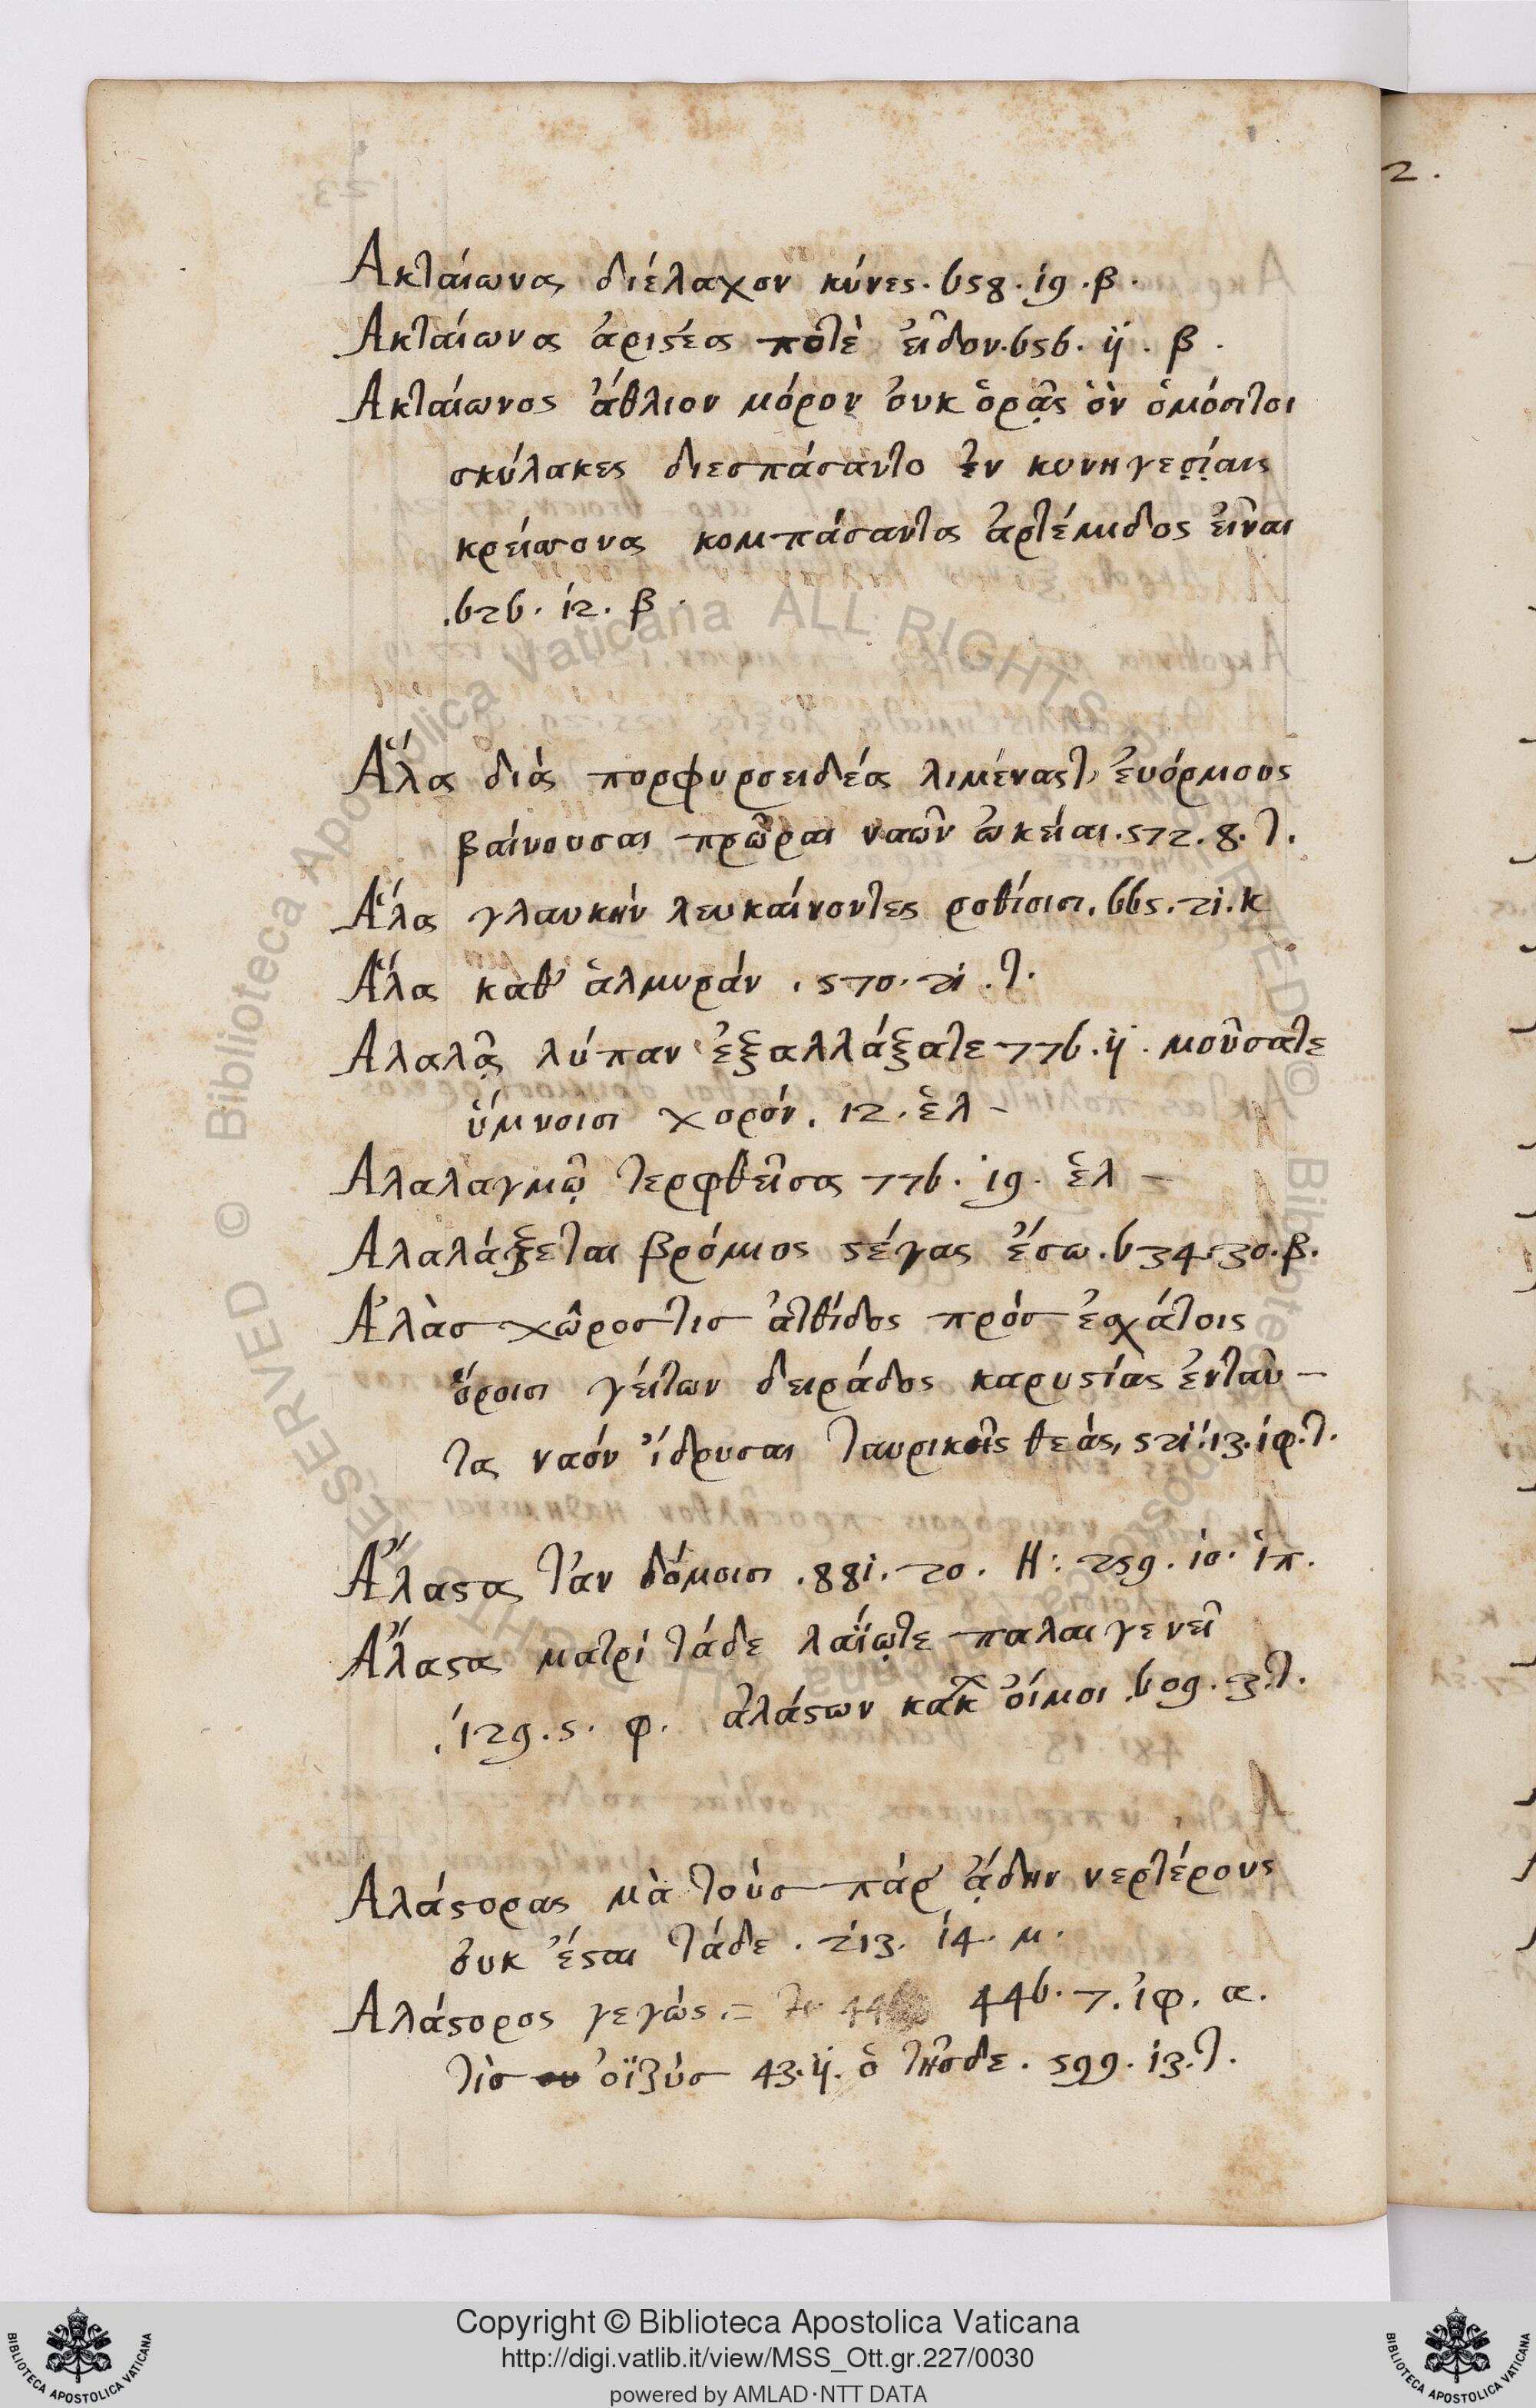 2.
Ακταίωνας διέλαχον κύνες. 658. ἰ9. β.
Ακταίωνα ἀριϛέα ποτὲ ἐῖδον. 656. ἰj. β.
Ακταίωνος ἄθλιον μόρον ὀυκ ὁρᾷς ὃν ὁμόσιτοι
σκύλακες διεσπάσαντο ἐν κυνηγεσίαις
κρείσσονα κομπάσαντα ἀρτέμιδος ἐῖναι
.626. ἰ2. β.
Ἅλα διὰ πορφυροειδέα λιμένας τ' ἐυόρμους
βαίνουσαι πρῶραι ναῶν ὠκεῖαι. 572. 8. τ.
Ἅλα γλαυκὴν λευκαίνοντες ροθίοισι. 665. 2i. κ
Ἅλα καθ' ἁλμυράν. 570. 2i. τ.
Αλαλᾷς λύπαν ἐξαλλάξατε 776. ij. μοῦσαί τε
ὕμνοισι χορόν. 12. ἑλ –
Αλαλαγμῷ τερφθεῖσα 776. ἰ9. ἑλ –
Αλαλάξεται βρόμιος ϛέγας ἔσω. 634. 30. β.
Ἁλὰσ χῶροσ τισ ἀτθίδος πρὸσ ἐσχάτοις
ὅροισι γείτων δειράδος καρυϛίας ἐνταῦ –
τα ναὸν ἵδρυσαι ταυρικῆς θεᾶς, 52i. ἰ3. ἰφ. τ.
Ἄλαϛα τἀν δόμοισι. 88i. 20. Η: 259. ἰ0. ἰπ.
Ἄλαϛα ματρί τάδε λαΐῳτε παλαιγενεῖ
.ἰ29. 5. φ. ἀλάϛων κακ οἴμοι. 609. 3. τ.
Αλάϛορας μὰ τοὺσ πάρ' ᾅδην νερτέρους
ὀυκ ἔϛαι τάδε. 2ἰ3. ἰ4. μ.
Αλάϛορος γεγώς. = 446. 7. ἰφ. α.
τὶσ ὀϊζύσ 43. ij. ὁ τῆσδε. 599. ἰ3. τ.
Copyright © Biblioteca Apostolica Vaticana
http://digi.vatlib.it/view/MSS_Ott.gr.227/0030
powered by AMLAD·NTT DATA
BIBLIOTECA APOSTOLICA VATICANA
BIBLIOTECA APOSTOLICA VATICANA